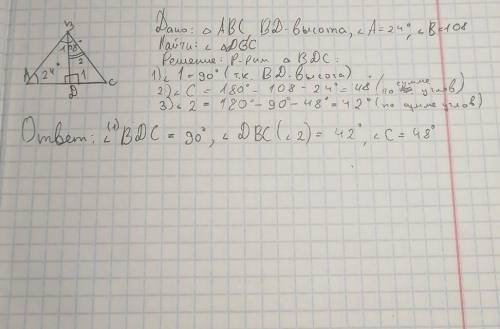 Дано: △ ABC, BD-высота, ∠A=24°, ∠B=108
Найти: ∠ DBC
Решение: Р-рим △ BDC:
1) ∠1=90° (т.к. BD-высота)
2) ∠C = 180° - 108 - 24° = 48° (по сумме углов)
3) ∠2 = 180° - 90° - 48° = 42° (по сумме углов)
Ответ: ∠(1) BDC = 90°, ∠ DBC (∠2) = 42°, ∠C = 48°
B
108°
2
A 24° 1 C
D